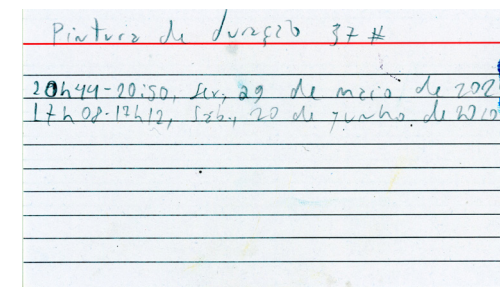 Pintura de duração 37 #
20h44-20:50, sex, 29 de maio de 202
17h08-17h12, sáb., 20 de junho de 2020